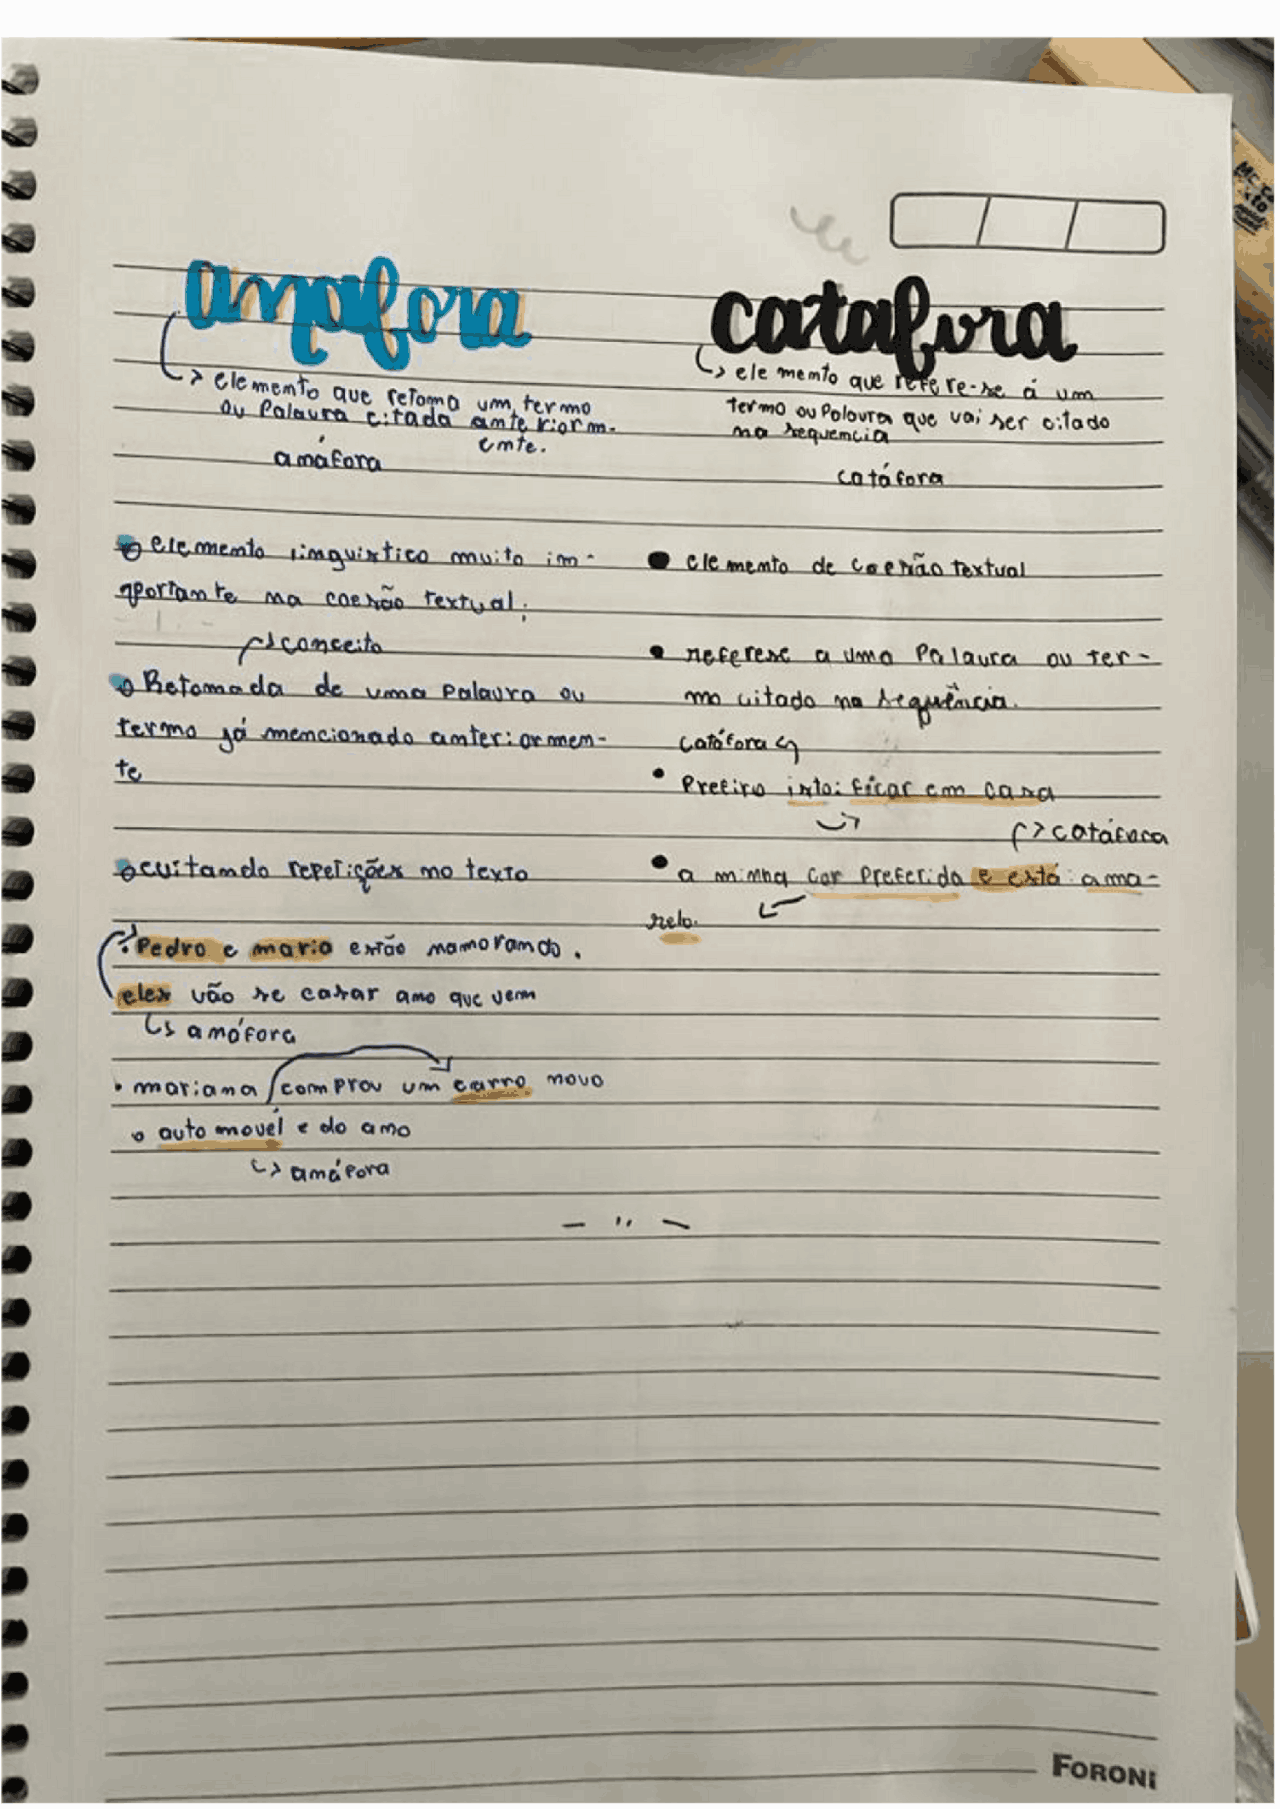 anafora
↳ elemento que retoma um termo
ou Palavra citada anteriorm-
ente.
anáfora
elemento linguistico muito im-
portante na coesão textual.
↱ conceito
Retomada de uma Palavra ou
termo já mencionado anteriormen-
te
evitando repetições no texto
• Pedro e maria estão namorando.
eles vão se casar ano que vem
↳ anáfora
• mariana comprou um carro novo
o automovél e do ano
↳ anáfora
catafora
↳ elemento que refere-se á um
termo ou Palavra que vai ser citado
na sequencia
catáfora
• elemento de coesão textual
• referese a uma Palavra ou ter-
mo citado na sequência.
catáfora
• Prefiro isto: ficar em casa
↱ catáfora
• a minha cor Preferida e está: ama-
relo.
— " —
FORONI